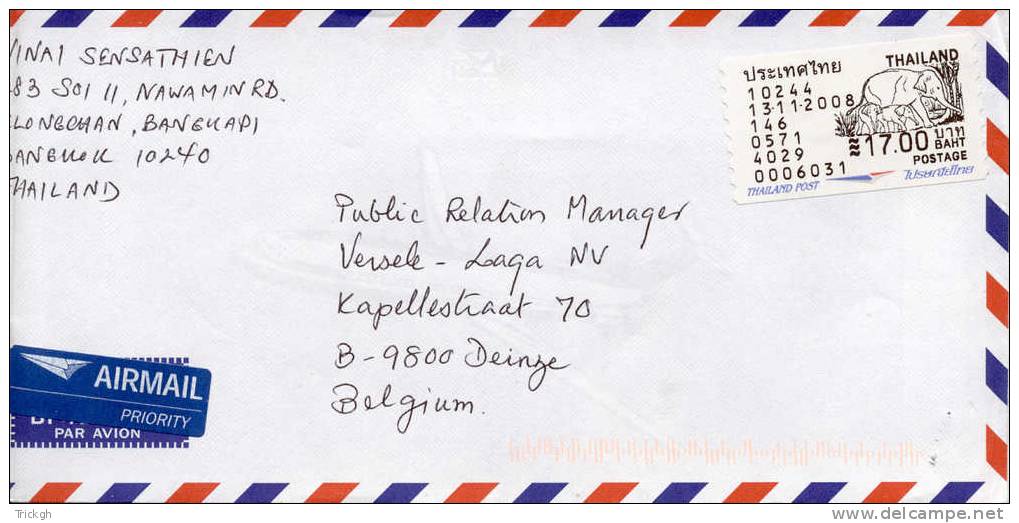 VINAI SENSATHIEN
83 SOI 11, NAWAMIN RD.
KLONGCHAN, BANGKAPI
BANGKOK 10240
THAILAND
ประเทศไทย
THAILAND
10244
13·11·2008
146
0571
4029
0006031
≋17.00 บาท
BAHT
POSTAGE
THAILAND POST
ไปรษณีย์ไทย
Public Relation Manager
Versele - Laga NV
Kapellestraat 70
B-9800 Deinze
Belgium.
AIRMAIL
PRIORITY
PAR AVION
Trickgh
delcampe.net